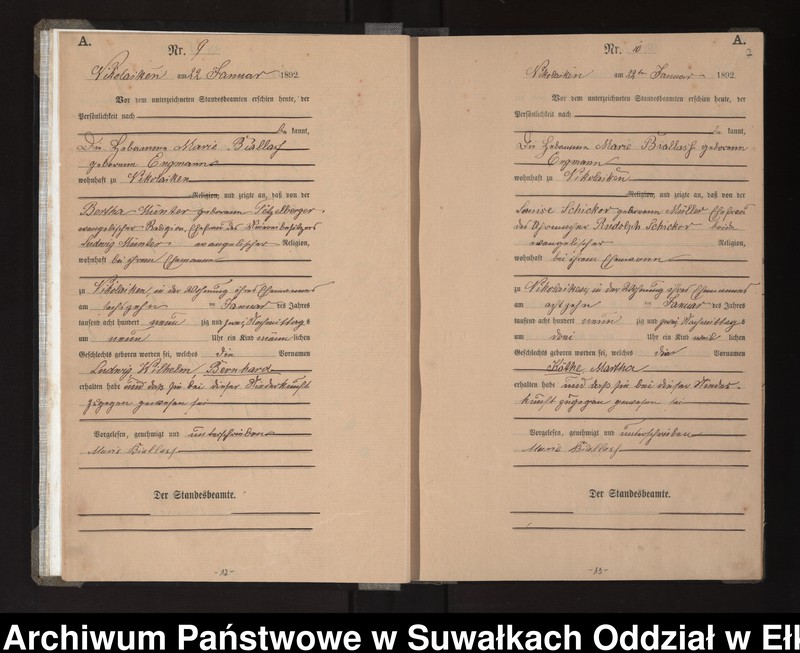 A.
Nr. 9
Nikolaiken am 22 Januar 1892
Vor dem unterzeichneten Standesbeamten erschien heute, der
Persönlichkeit nach
be kannt,
Die Hebamme Marie Biallas
geborene Engmann
wohnhaft zu Nikolaiken
Religion, und zeigte an, daß von der
Bertha geborenen
evangelischer Religion, Ehefrau des
Ludwig evangelischer Religion,
wohnhaft bei ihrem Ehemanne
zu Nikolaiken, in der Wohnung ihres Ehemannes
am sechszehn ten Januar des Jahres
tausend acht hundert neun zig und zwei, Nachmittags
um neun Uhr ein Kind männ lichen
Geschlechts geboren worden sei, welches die Vornamen
Ludwig Wilhelm Bernhard
erhalten habe und daß sie bei dieser Niederkunft
zugegen gewesen sei
Vorgelesen, genehmigt und unterschrieben
Marie Biallas
Der Standesbeamte.
-12-
A.
7
Nr. 10
Nikolaiken am 22ten Januar 1892
Vor dem unterzeichneten Standesbeamten erschien heute, der
Persönlichkeit nach
be kannt,
Die Hebamme Marie Biallas geborene
Engmann
wohnhaft zu Nikolaiken
Religion, und zeigte an, daß von der
Louise Schickor geborenen Müller Ehefrau
des Rudolph Schickor beide
evangelischer Religion,
wohnhaft bei ihrem Ehemanne
zu Nikolaiken, in der Wohnung ihres Ehemannes
am achtzehn ten Januar des Jahres
tausend acht hundert neun zig und zwei, Nachmittags
um drei Uhr ein Kind weib lichen
Geschlechts geboren worden sei, welches die Vornamen
Käthe Martha
erhalten habe und daß sie bei dieser Nieder-
kunft zugegen gewesen sei
Vorgelesen, genehmigt und unterschrieben
Marie Biallas
Der Standesbeamte.
-13-
Archiwum Państwowe w Suwałkach Oddział w Ełk